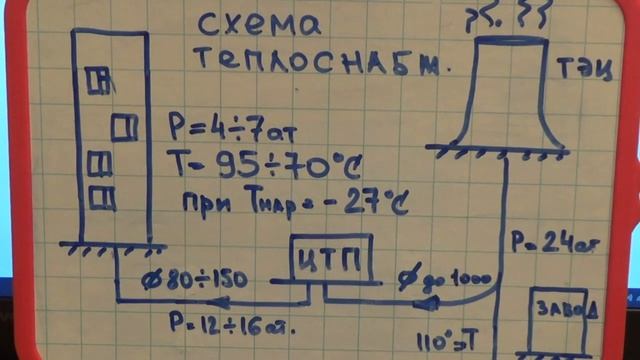 СХЕМА
ТЕПЛОСНАБЖ.
ТЭЦ
P=4÷7ат
T=95÷70°C
при Tнар=-27°C
P=24ат
ЦТП
Ф80÷150
Ф до 1000
ЗАВОД
P=12÷16ат.
110°=T